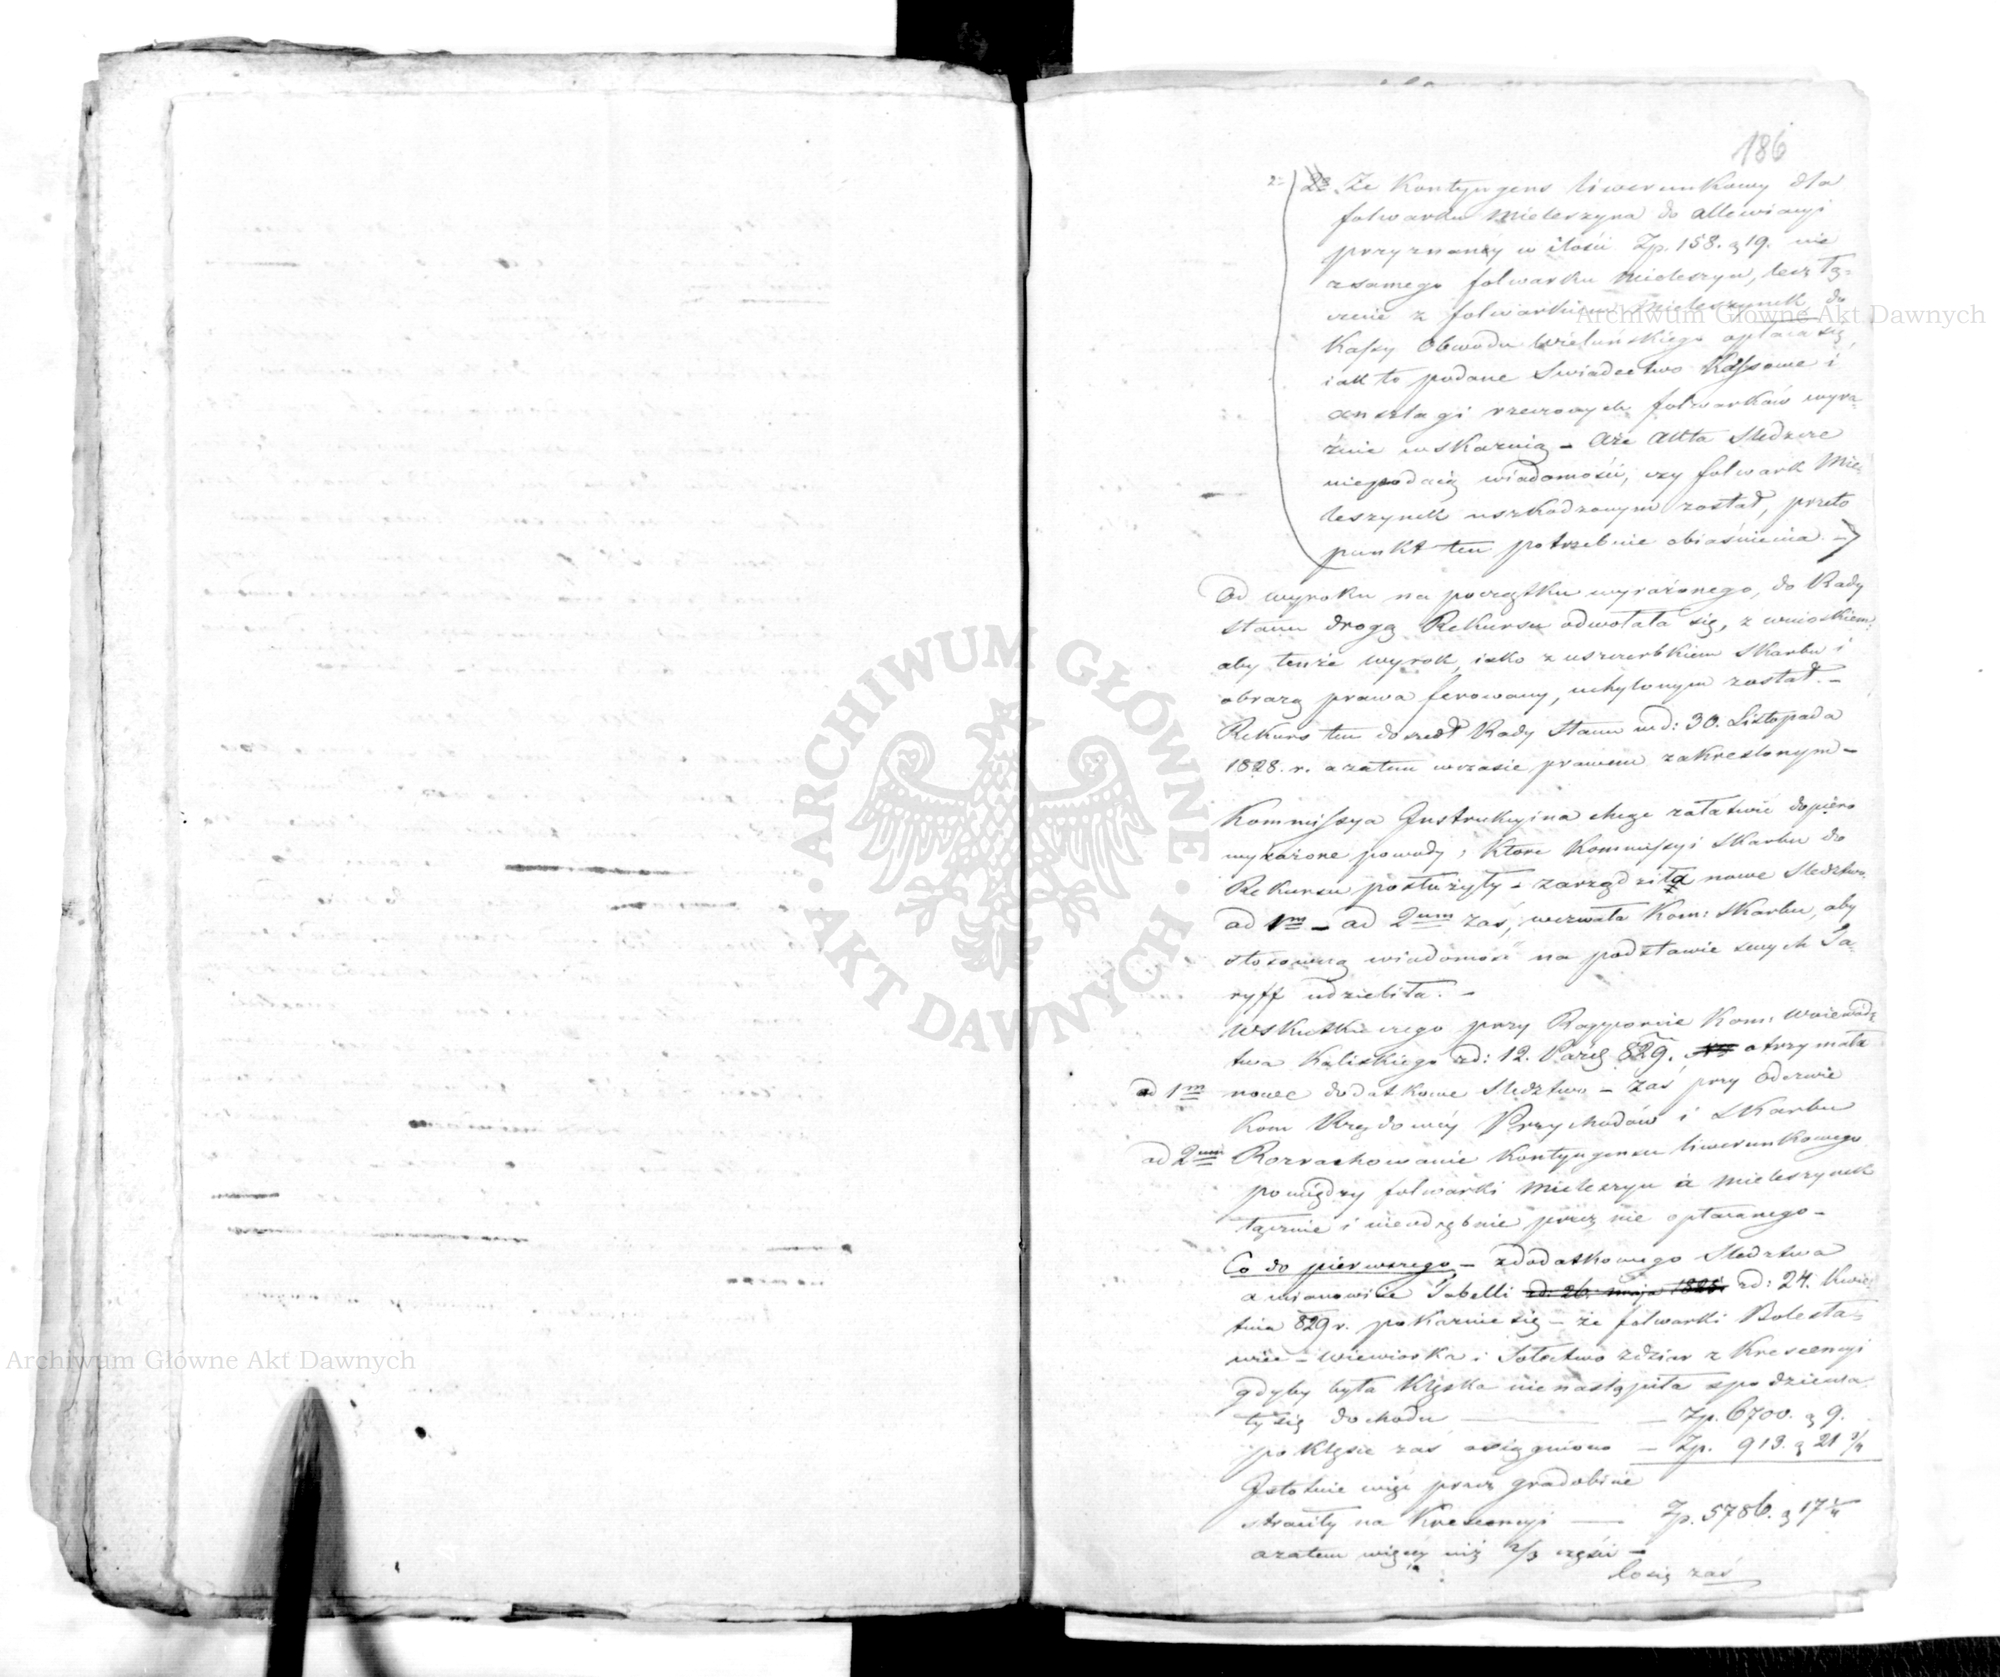 186
2° 2° Że Kontyngens liwerunkowy dla
folwarku Mieleszyna do allewiacyi
przyznany w ilości Zp. 158. g 19. nie
z samego folwarku Mieleszyn, lecz łą-
cznie z folwarkiem Mieleszynek do
Kassy Obwodu Wieluńskiego opłaca się,
iak to podane Swiadectwo Kassowe i
anszlagi rzeczonych folwarków wyra-
źnie wskazuią – Aże Akta Sledcze
niepodaią wiadomości, czy folwark Mie-
leszynek uszkodzonym został, przeto
punkt ten potrzebuie obiaśnienia. –
Od wyroku na początku wyrażonego, do Rady
Stanu drogą Rekursu odwołała się, z wnioskiem:
aby tenże wyrok, iako z uszczerbkiem Skarbu i
obrazą prawa ferowany, uchylonym został. –
Rekurs ten doszedł Rady Stanu w d: 30. Listopada
1828. r. a zatem w czasie prawem zakreslonym –
Kommissya Instrukcyina chcąc załatwić dopiero
wyrażone powody, które Kommissyi Skarbu do
Rekursu posłużyły – zarządziła nowe Sledztwo.
ad 1m – ad 2um zaś, wezwała Kom: Skarbu, aby
stosowną wiadomość na podstawie swych Ta-
ryff udzieliła. –
Wskutku czego przy Rapporcie Kom: Woiewódz
twa Kaliskiego z d: 12. Paźdz 829. otrzymała
ad 1m nowe dodatkowe Sledztwo – zaś przy Odezwie
Kom Rządowéy Przychodów i Skarbu
ad 2um Rozrachowanie Kontyngensu liwerunkowego
pomiędzy folwarki Mieleszyn a Mieleszynek
łącznie i nieodrębnie przez nie opłacanego –
Co do pierwszego – z dodatkowego Sledztwa
a mianowicie Tabelli z d: 26. maja 1828. z d: 24. Kwie-
tnia 829 r. pokazuie się – że folwarki Bolesła-
wiec – Wiewiorka i Sołectwo Zdziar z Krescencyi
gdyby była klęska nie nastąpiła spodziewa
ły się dochodu — — Zp. 6700. g 9.
po klęsce zaś osiągniono — Zp. 913. g 21 3/4
Istotnie więc przez gradobicie
straciły na Krescencyi — Zp. 5786. g 17 1/4
a zatem więcey niż 2/3 części –
Co się zaś
Archiwum Główne Akt Dawnych
Archiwum Główne Akt Dawnych
ARCHIWUM GŁÓWNE · AKT DAWNYCH ·